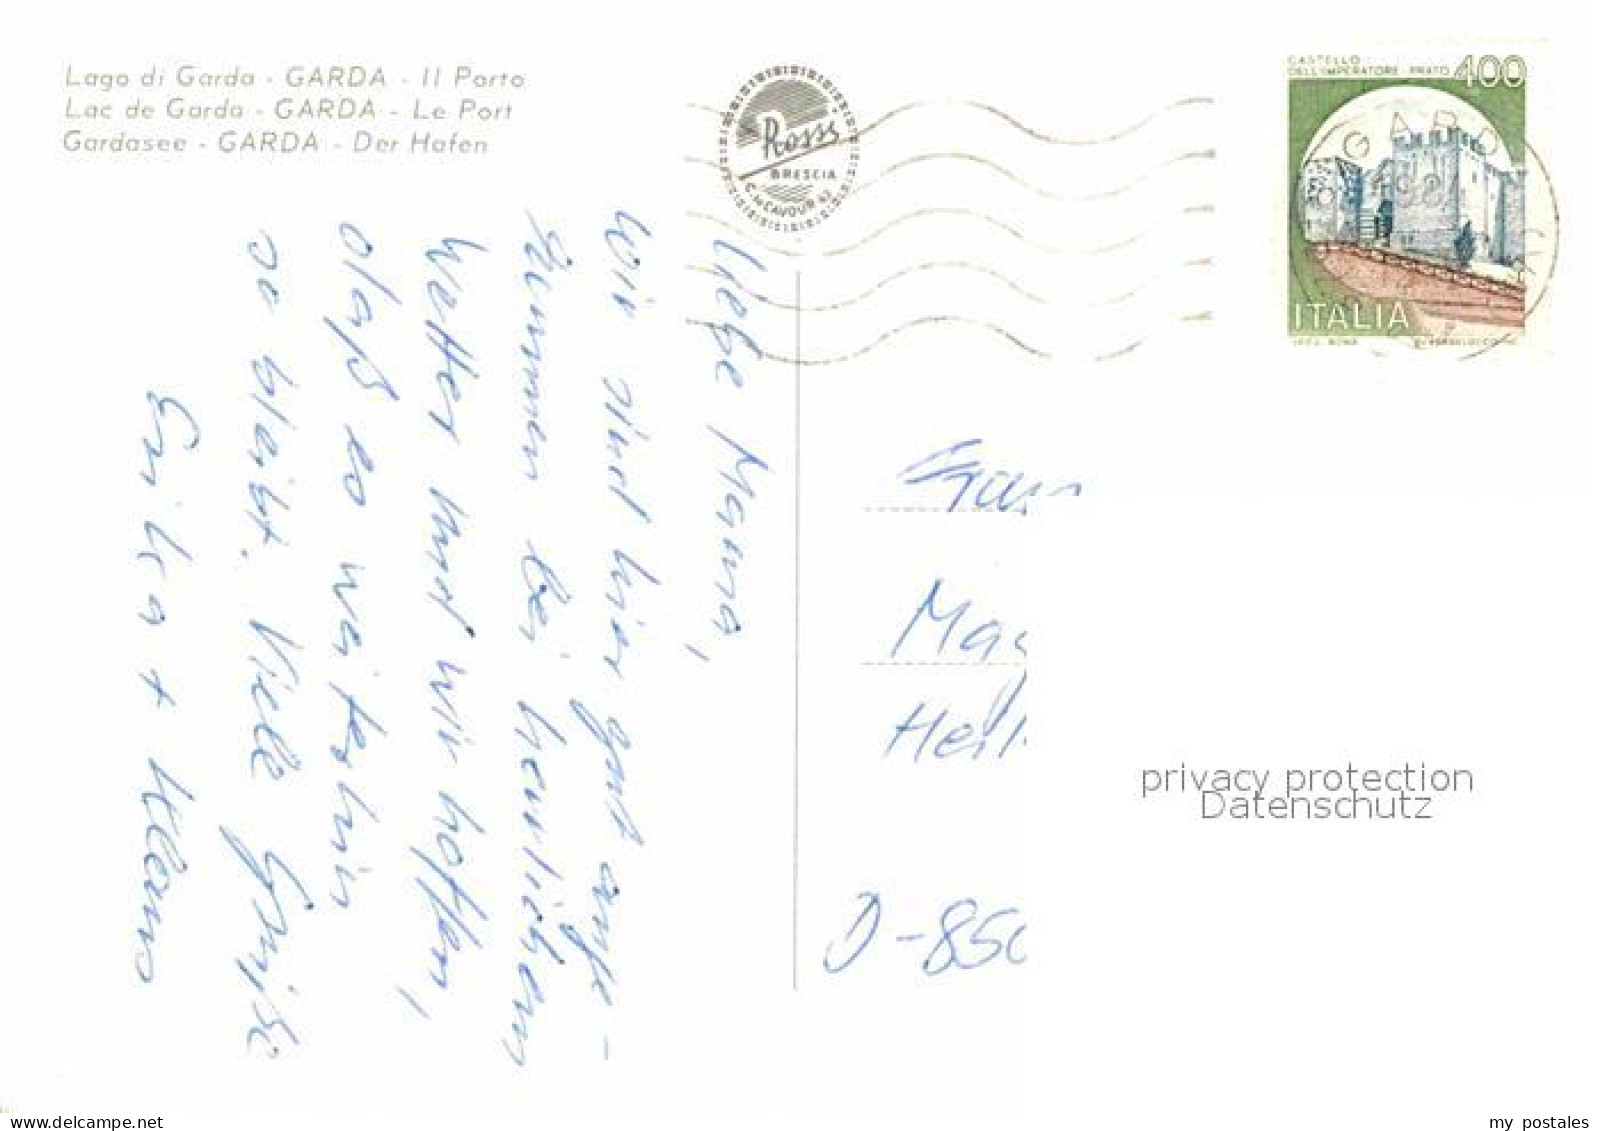 Lago di Garda - GARDA - Il Porto
Lac de Garda - GARDA - Le Port
Gardasee - GARDA - Der Hafen
Rossi
BRESCIA
C. CAVOUR
CASTELLO
DELL'IMPERATORE - PRATO 400
GARD
ITALIA
I.P.Z.S. ROMA
Liebe Mama,
wir sind hier gut ange-
kommen bei herrlichem
Wetter und wir hoffen,
daß es weiterhin
so bleibt. Viele Grüße
Erika + Klaus
D-850
privacy protection
Datenschutz
www.delcampe.net
my_postales